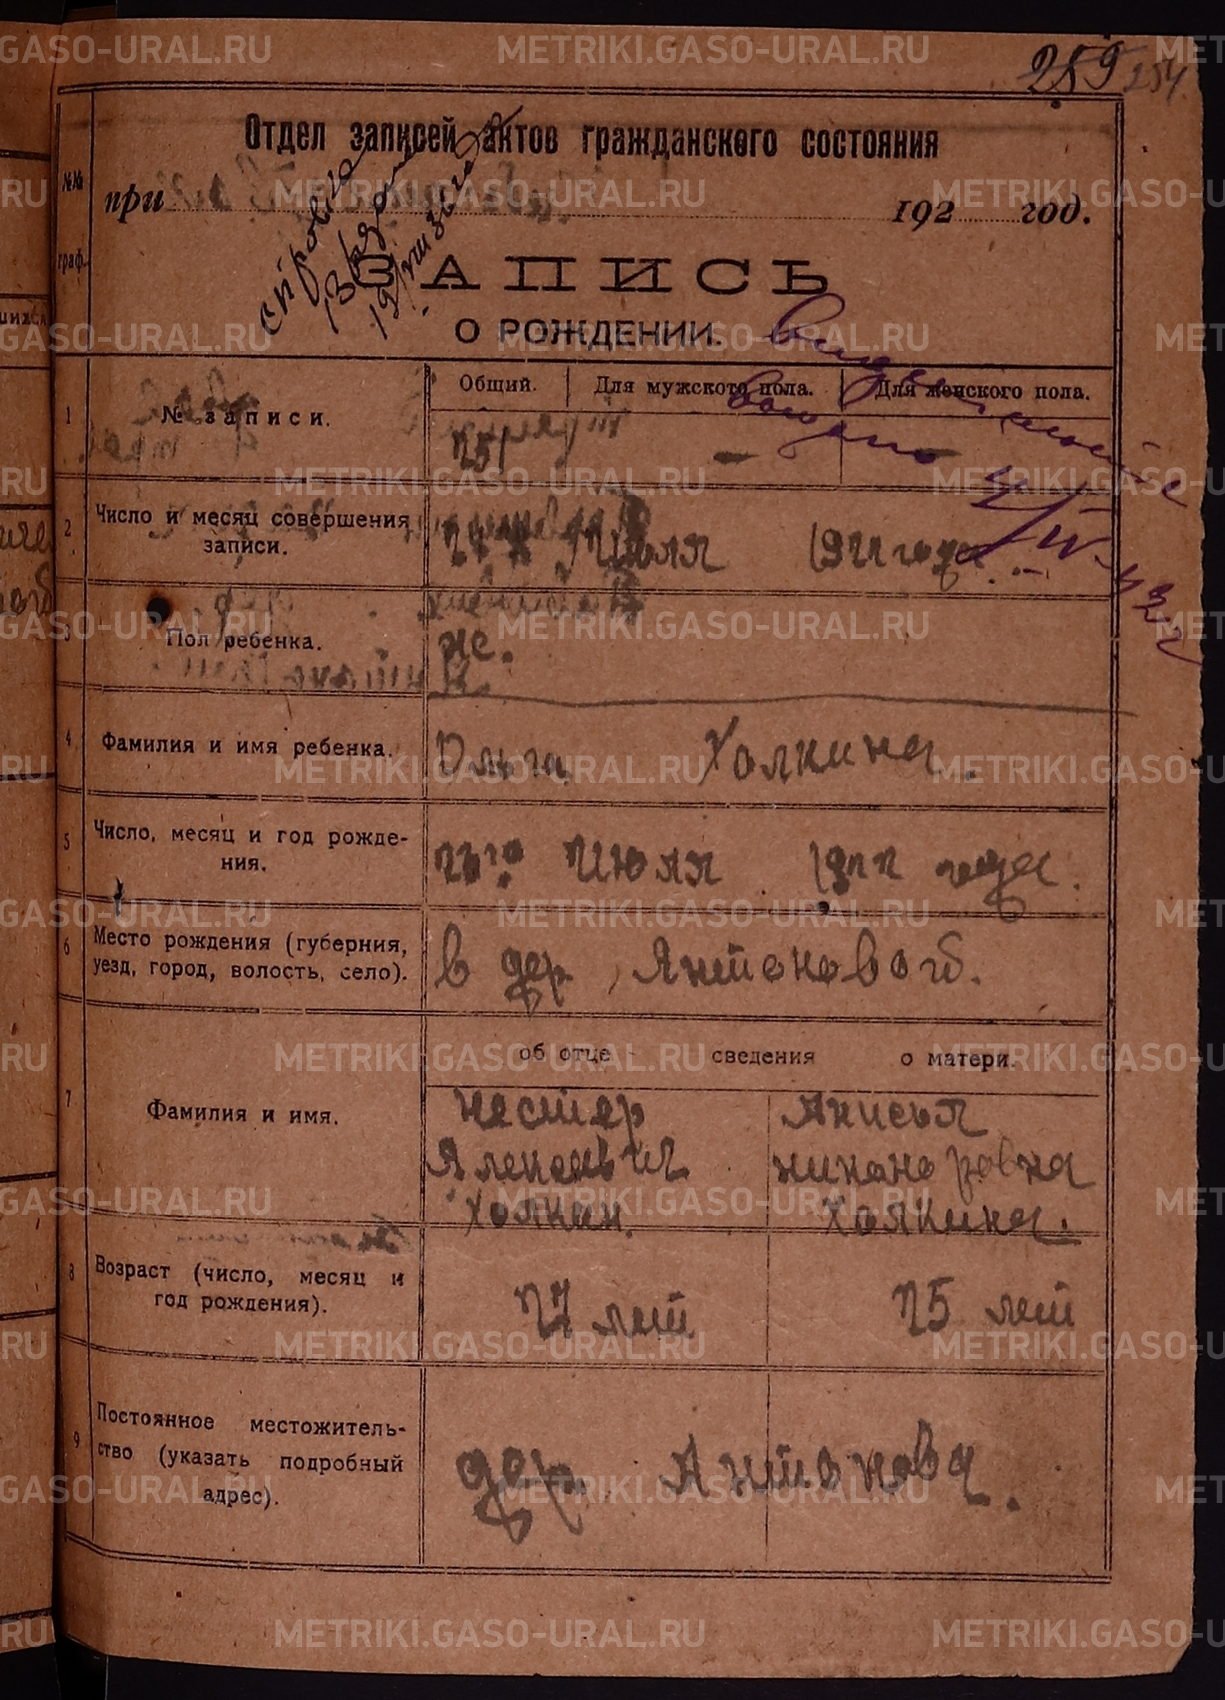 259
254
Отдел записей актов гражданского состояния
№№ граф.
при 192 год.
справка
ЗАПИСЬ
О РОЖДЕНИИ.
1
№ записи.
Общий.
Для мужского пола.
Для женского пола.
— —
2
Число и месяц совершения
записи.
Июля 1922 года.
3
Пол ребенка.
же.
4
Фамилия и имя ребенка.
Ольга Холкина.
5
Число, месяц и год рожде-
ния.
Июля 1922 года.
6
Место рождения (губерния,
уезд, город, волость, село).
в дер, Антоновой.
об отце сведения о матери.
7
Фамилия и имя.
Нестер
Алексевич
Холкин.
Анисья
никаноровна
Холкина.
8
Возраст (число, месяц и
год рождения).
27 лет
25 лет
9
Постоянное местожитель-
ство (указать подробный
адрес).
дер. Антонова.
METRIKI.GASO-URAL.RU